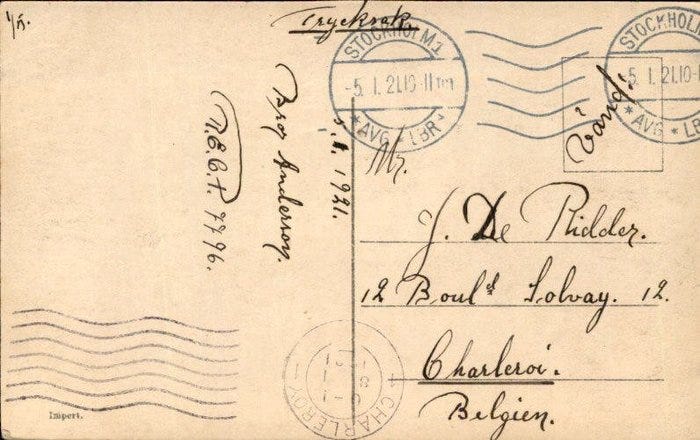 1/5.
Trycksak
STOCKHOLM.1
-5.1.21.10-11 fm
* AVG * LBR *
STOCKHOLM
5.1.21.10-
* AVG * LB
Vänd!
Brog Anderson.
T.E.C.H. 7796.
5.1.1921.
Mr.
J. De Ridder.
12 Boulᵈ Solvay. 12.
Charleroi.
Belgien.
CHARLEROY
Import.